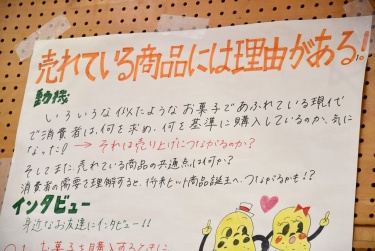 売れている商品には理由がある!
動機
いろいろな似たようなお菓子であふれている現代
で消費者は、何を求め、何を基準に購入しているのか、気に
なった! → それは売り上げにつながるのか?
そしてまた売れている商品の共通点は何か?
消費者の需要を理解すると、将来ヒット商品誕生へつながるかも!?
インタビュー
身近なお友達にインタビュー!!
Q1 お菓子を購入するときに